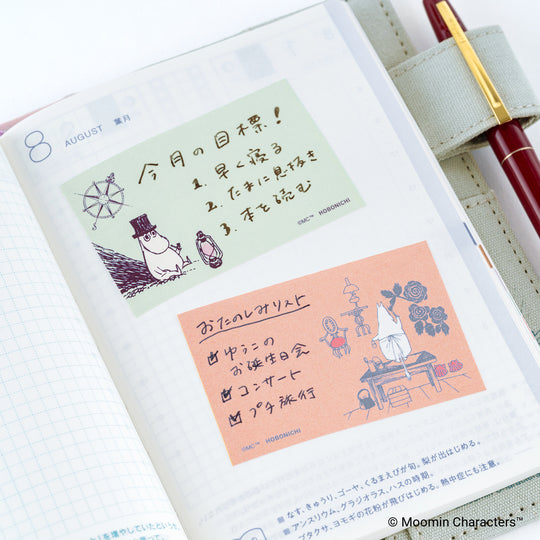 8 AUGUST 葉月
今月の目標!
1. 早く寝る
2. たまに息抜き
3. 本を読む
©MC™ HOBONICHI
おたのしみリスト
ゆうこの
お誕生日会
コンサート
プチ旅行
©MC™ HOBONICHI
なす、きゅうり、ゴーヤ、くるまえびが旬。梨が出はじめる。
アンスリウム、グラジオラス、ハスの時期。
ブタクサ、ヨモギの花粉が飛びはじめる。熱中症にも注意。
を増やしていたという
© Moomin Characters™